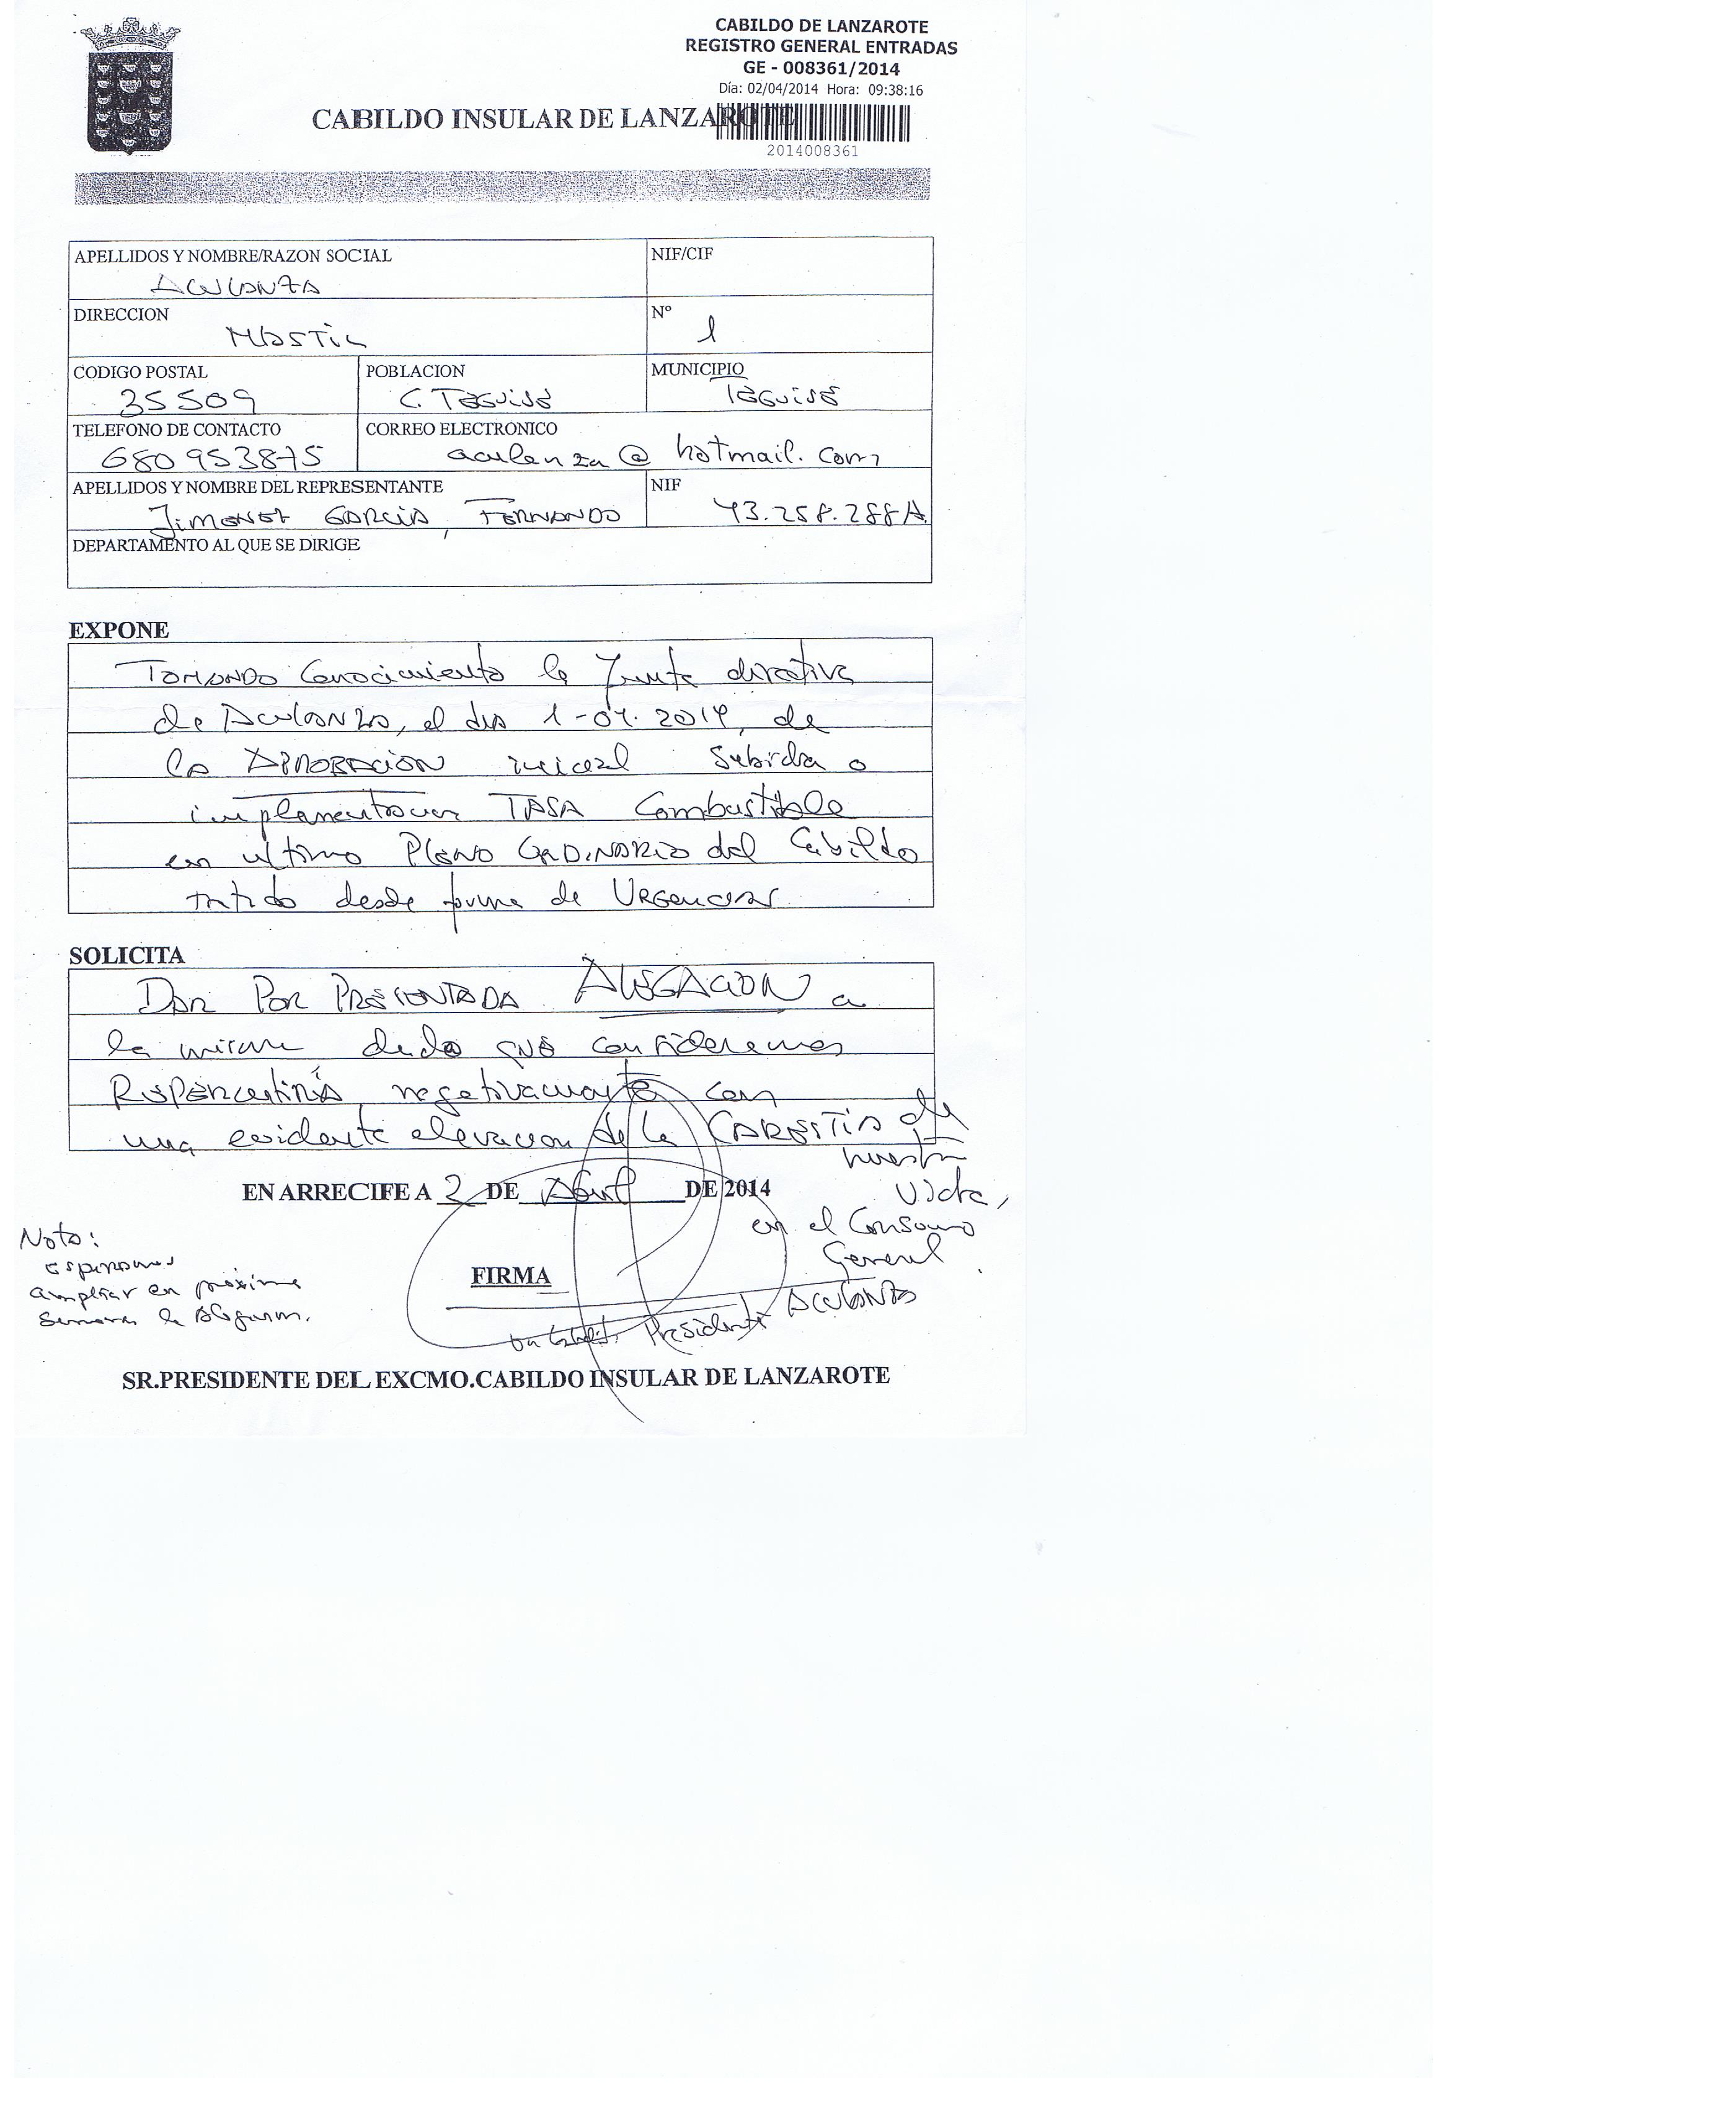 CABILDO DE LANZAROTE
REGISTRO GENERAL ENTRADAS
GE - 008361/2014
Día: 02/04/2014 Hora: 09:38:16
CABILDO INSULAR DE LANZAROTE
2014008361
APELLIDOS Y NOMBRE/RAZON SOCIAL
NIF/CIF
ACULANZA
DIRECCION
Nº
MASTIL
1
CODIGO POSTAL
POBLACION
MUNICIPIO
35509
C. TEGUISE
TEGUISE
TELEFONO DE CONTACTO
CORREO ELECTRONICO
680 953875
aculanza@hotmail.com
APELLIDOS Y NOMBRE DEL REPRESENTANTE
NIF
GARCIA, FERNANDO
43.258.288A
DEPARTAMENTO AL QUE SE DIRIGE
EXPONE
TOMANDO Conocimiento la Junta directiva
de ACULANZA, el dia 1-04.2014, de
la APROBACION inicial Subida o
TASA Combustible
en ultimo PLENO ORDINARIO del Cabildo
desde forma de URGENCIA
SOLICITA
DAR POR PRESENTADA ALEGACION a
la misma dado que consideramos
negativamente con
una evidente elevacion de la CARESTIA de
nuestra
vida,
EN ARRECIFE A 2 DE Abril DE 2014
en el Consumo
General
Nota:
esperamos
ampliar en próxima
semana la
FIRMA
Presidente ACULANZA
SR.PRESIDENTE DEL EXCMO.CABILDO INSULAR DE LANZAROTE